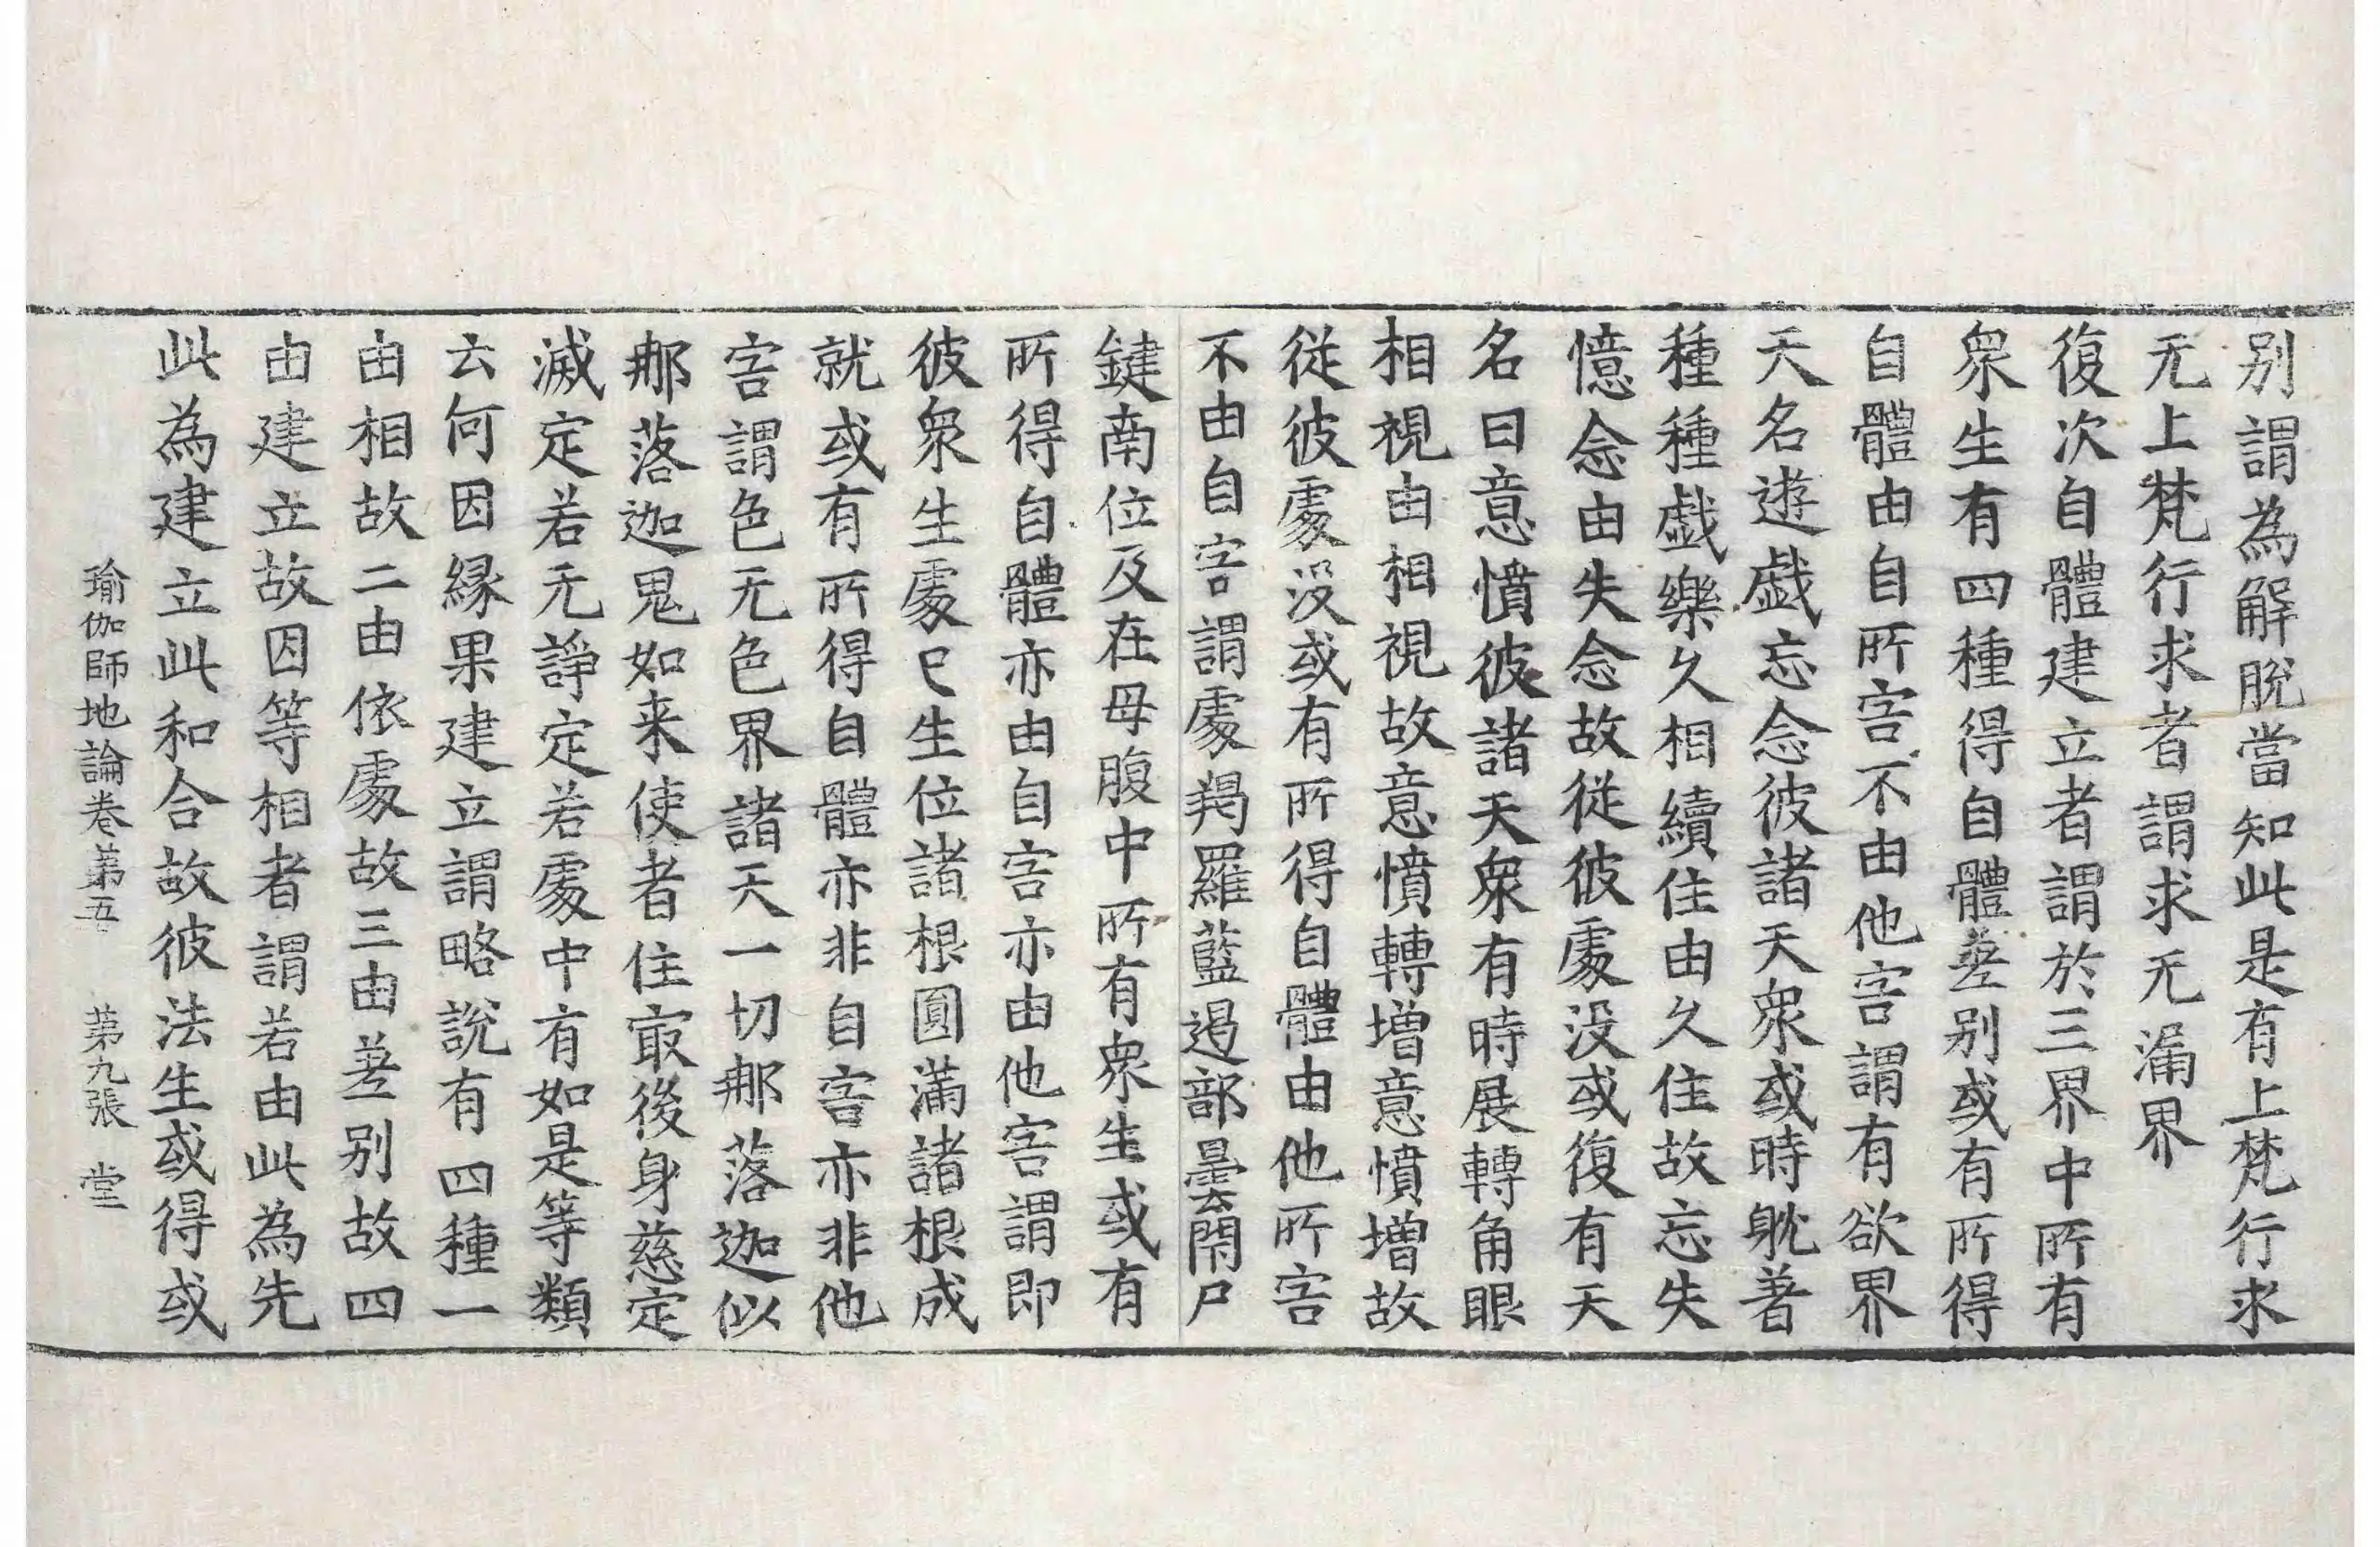 别謂為解脫當知此是有上梵行求
无上梵行求者謂求无漏界
復次自體建立者謂於三界中所有
衆生有四種得自體差别或有所得
自體由自所害不由他害謂有欲界
天名遊戲忘念彼諸天衆或時躭著
種種戲樂久相續住由久住故忘失
憶念由失念故從彼處没或復有天
名曰意憤彼諸天衆有時展轉角眼
相視由相視故意憤轉增意憤增故
從彼處没或有所得自體由他所害
不由自害謂處羯羅藍遏部曇閇尸
鍵南位及在母腹中所有衆生或有
所得自體亦由自害亦由他害謂即
彼衆生處已生位諸根圓滿諸根成
就或有所得自體亦非自害亦非他
害謂色无色界諸天一切那落迦似
那落迦鬼如来使者住㝡後身慈定
滅定若无諍定若處中有如是等類
云何因緣果建立謂略說有四種一
由相故二由依處故三由差别故四
由建立故因等相者謂若由此為先
此為建立此和合故彼法生或得或
瑜伽師地論卷第五 第九張 堂